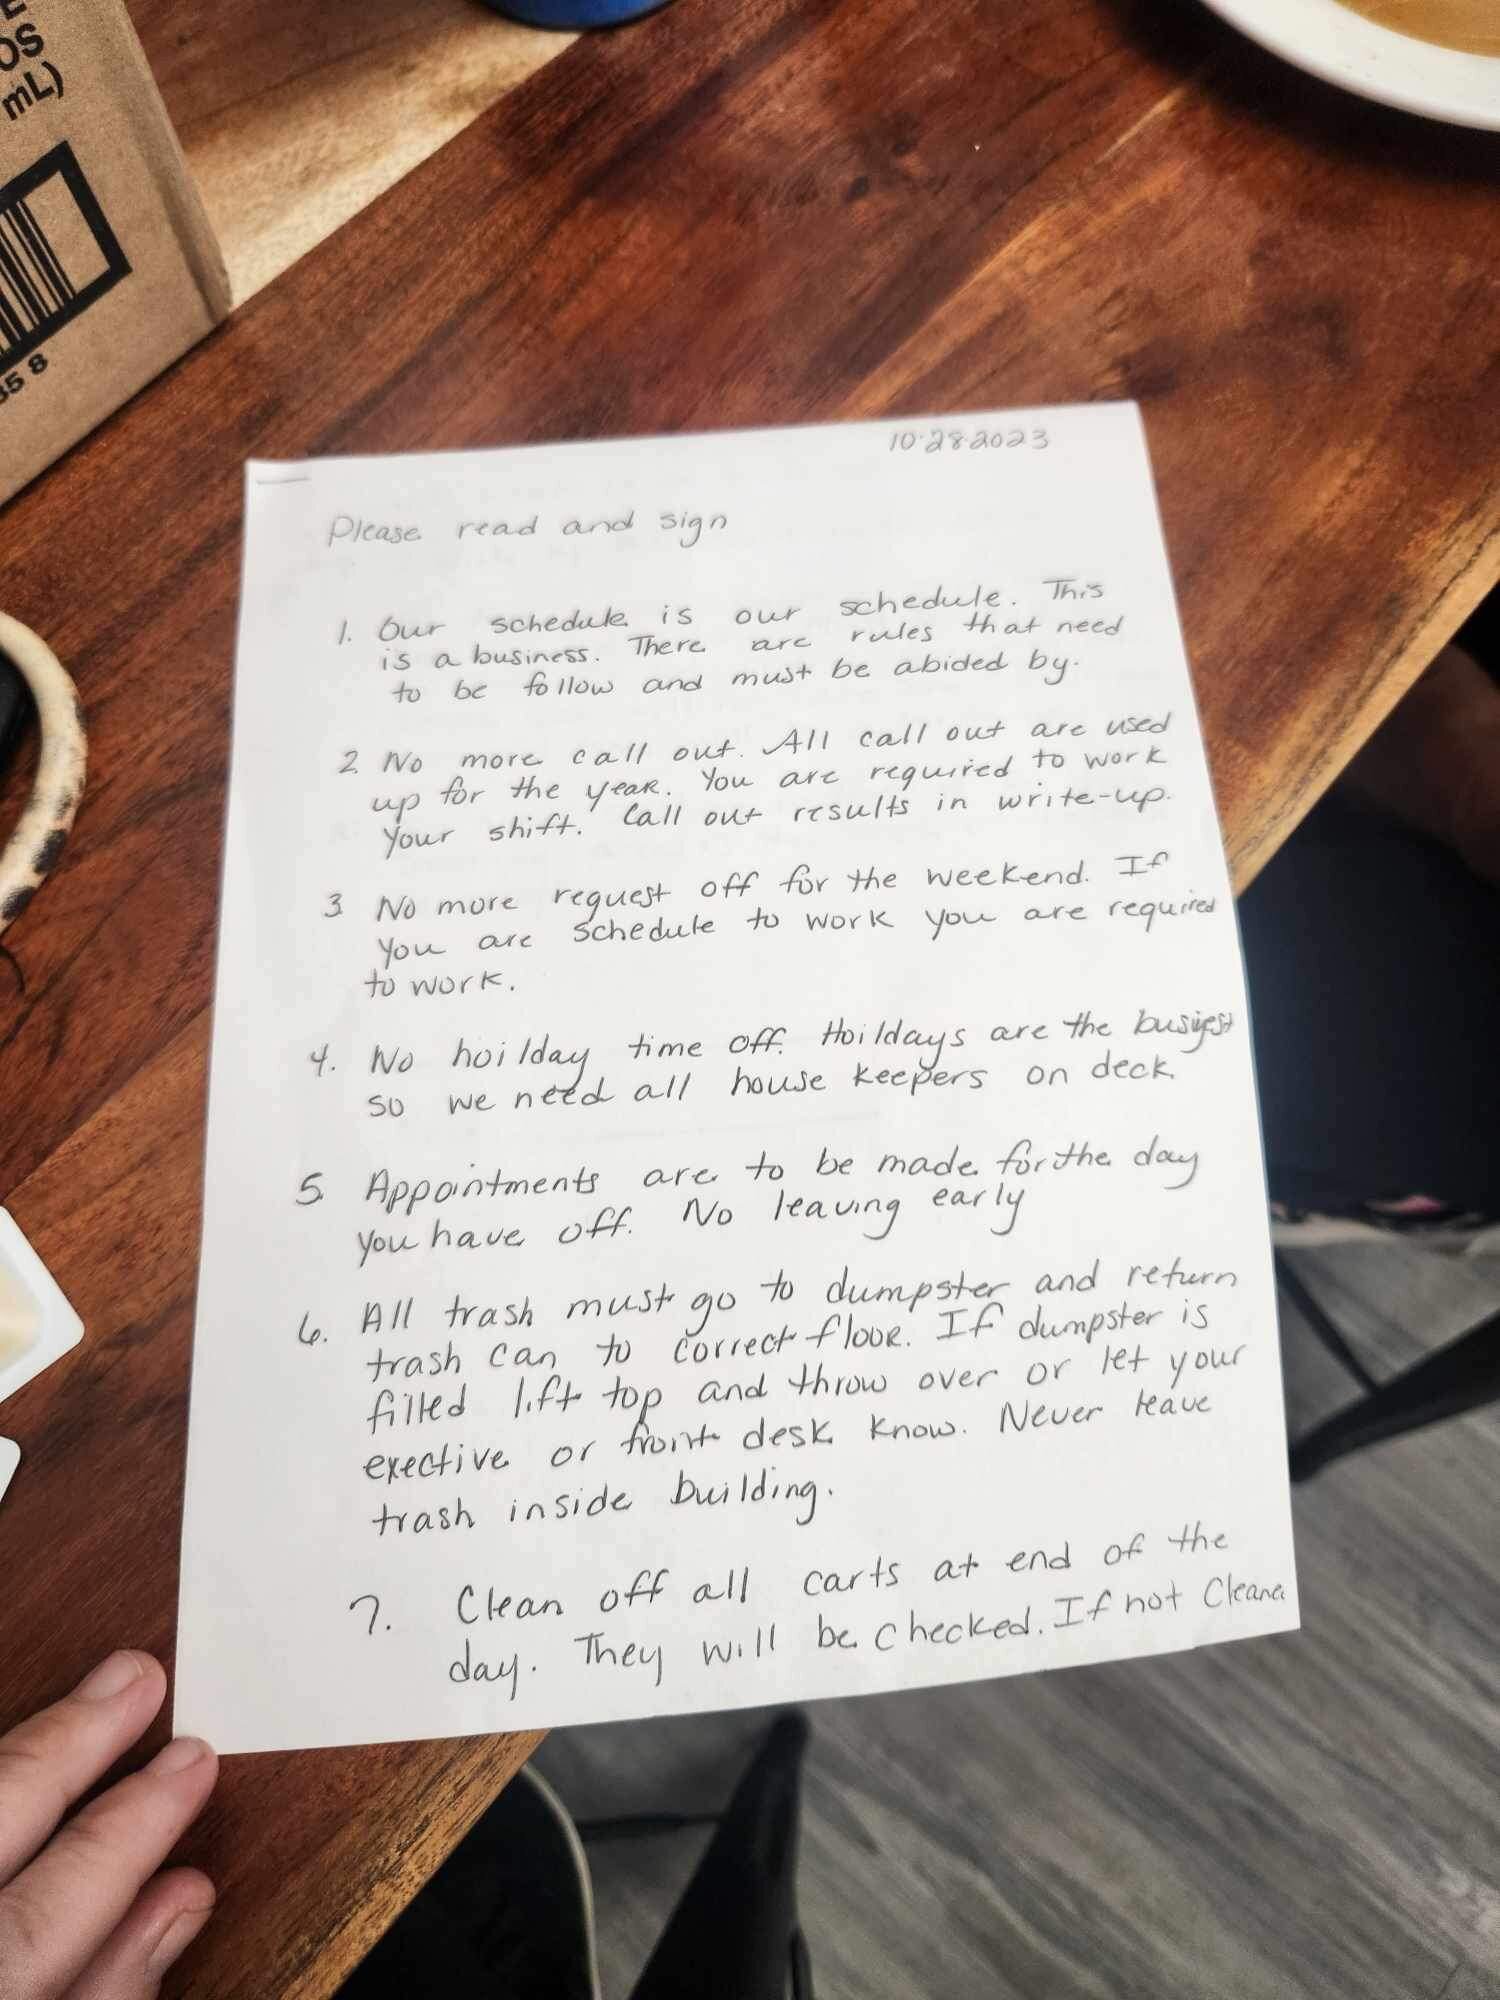 OS
mL)
35 8
10·28·2023
Please read and sign
1. Our schedule is our schedule. This
is a business. There are rules that need
to be follow and must be abided by.
2. No more call out. All call out are used
up for the year. You are required to work
your shift. Call out results in write-up.
3 No more request off for the weekend. If
you are schedule to work you are required
to work.
4. No hoilday time off. Hoildays are the busiest
so we need all house keepers on deck.
5 Appointments are to be made for the day
you have off. No leaving early
6. All trash must go to dumpster and return
trash can to correct floor. If dumpster is
filled lift top and throw over or let your
exective or front desk know. Never leave
trash inside building.
7. Clean off all carts at end of the
day. They will be checked. If not Cleane